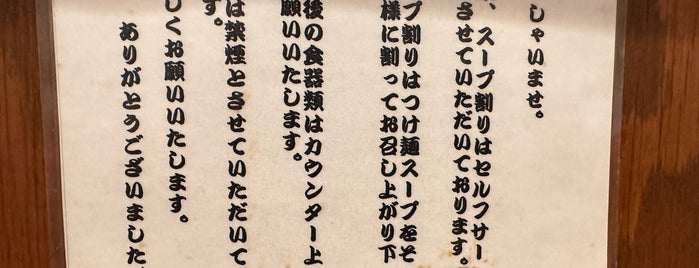 しゃいませ。
、スープ割りはセルフサー
させていただいております。
プ割りはつけ麺スープをそ
様に割ってお召し上がり下
後の食器類はカウンター上
願いいたします。
は禁煙とさせていただいて
す。
しくお願いいたします。
ありがとうございました